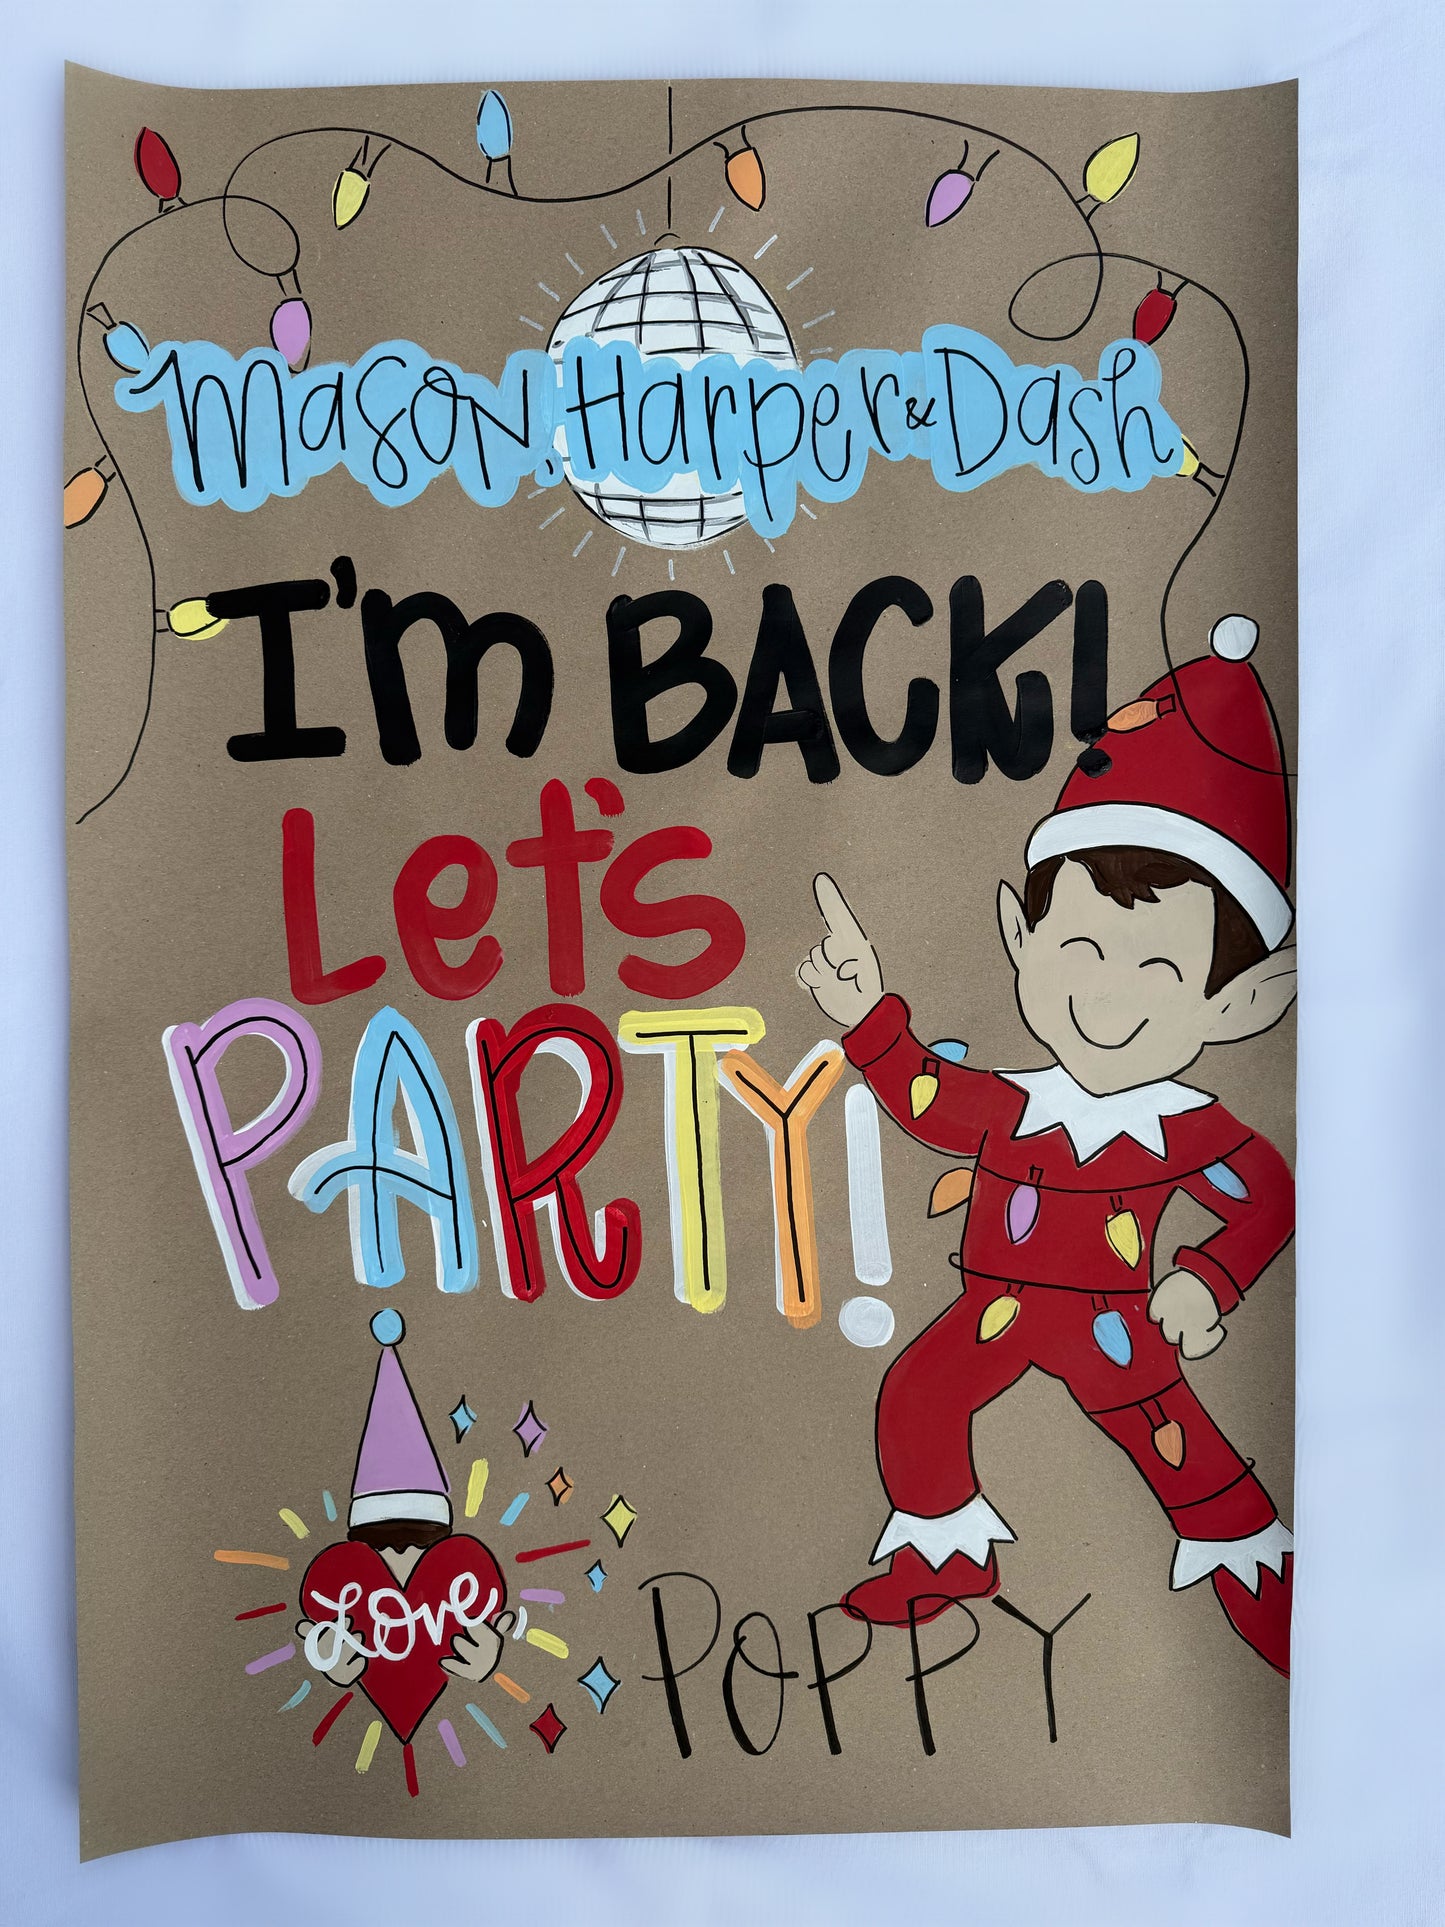 Mason, Harper & Dash
I'm BACK!
Let's
PARTY!
Love
POPPY